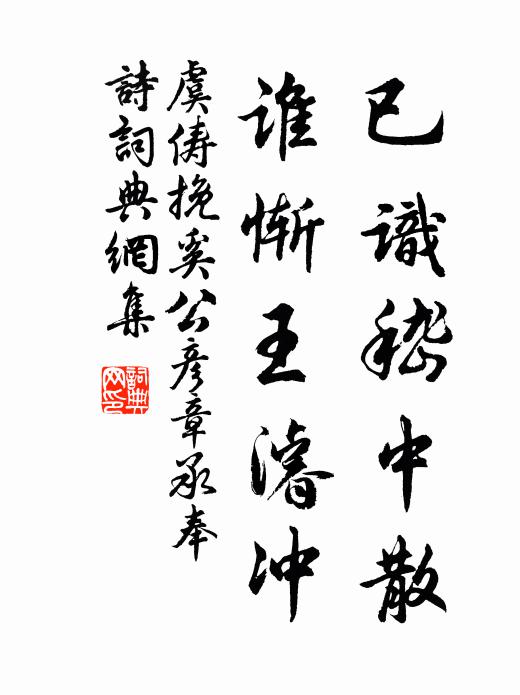 已識嵇中散
誰慚王濬沖
虞儔挽奚公彥章承奉
詩詞典網集
詞典
网印